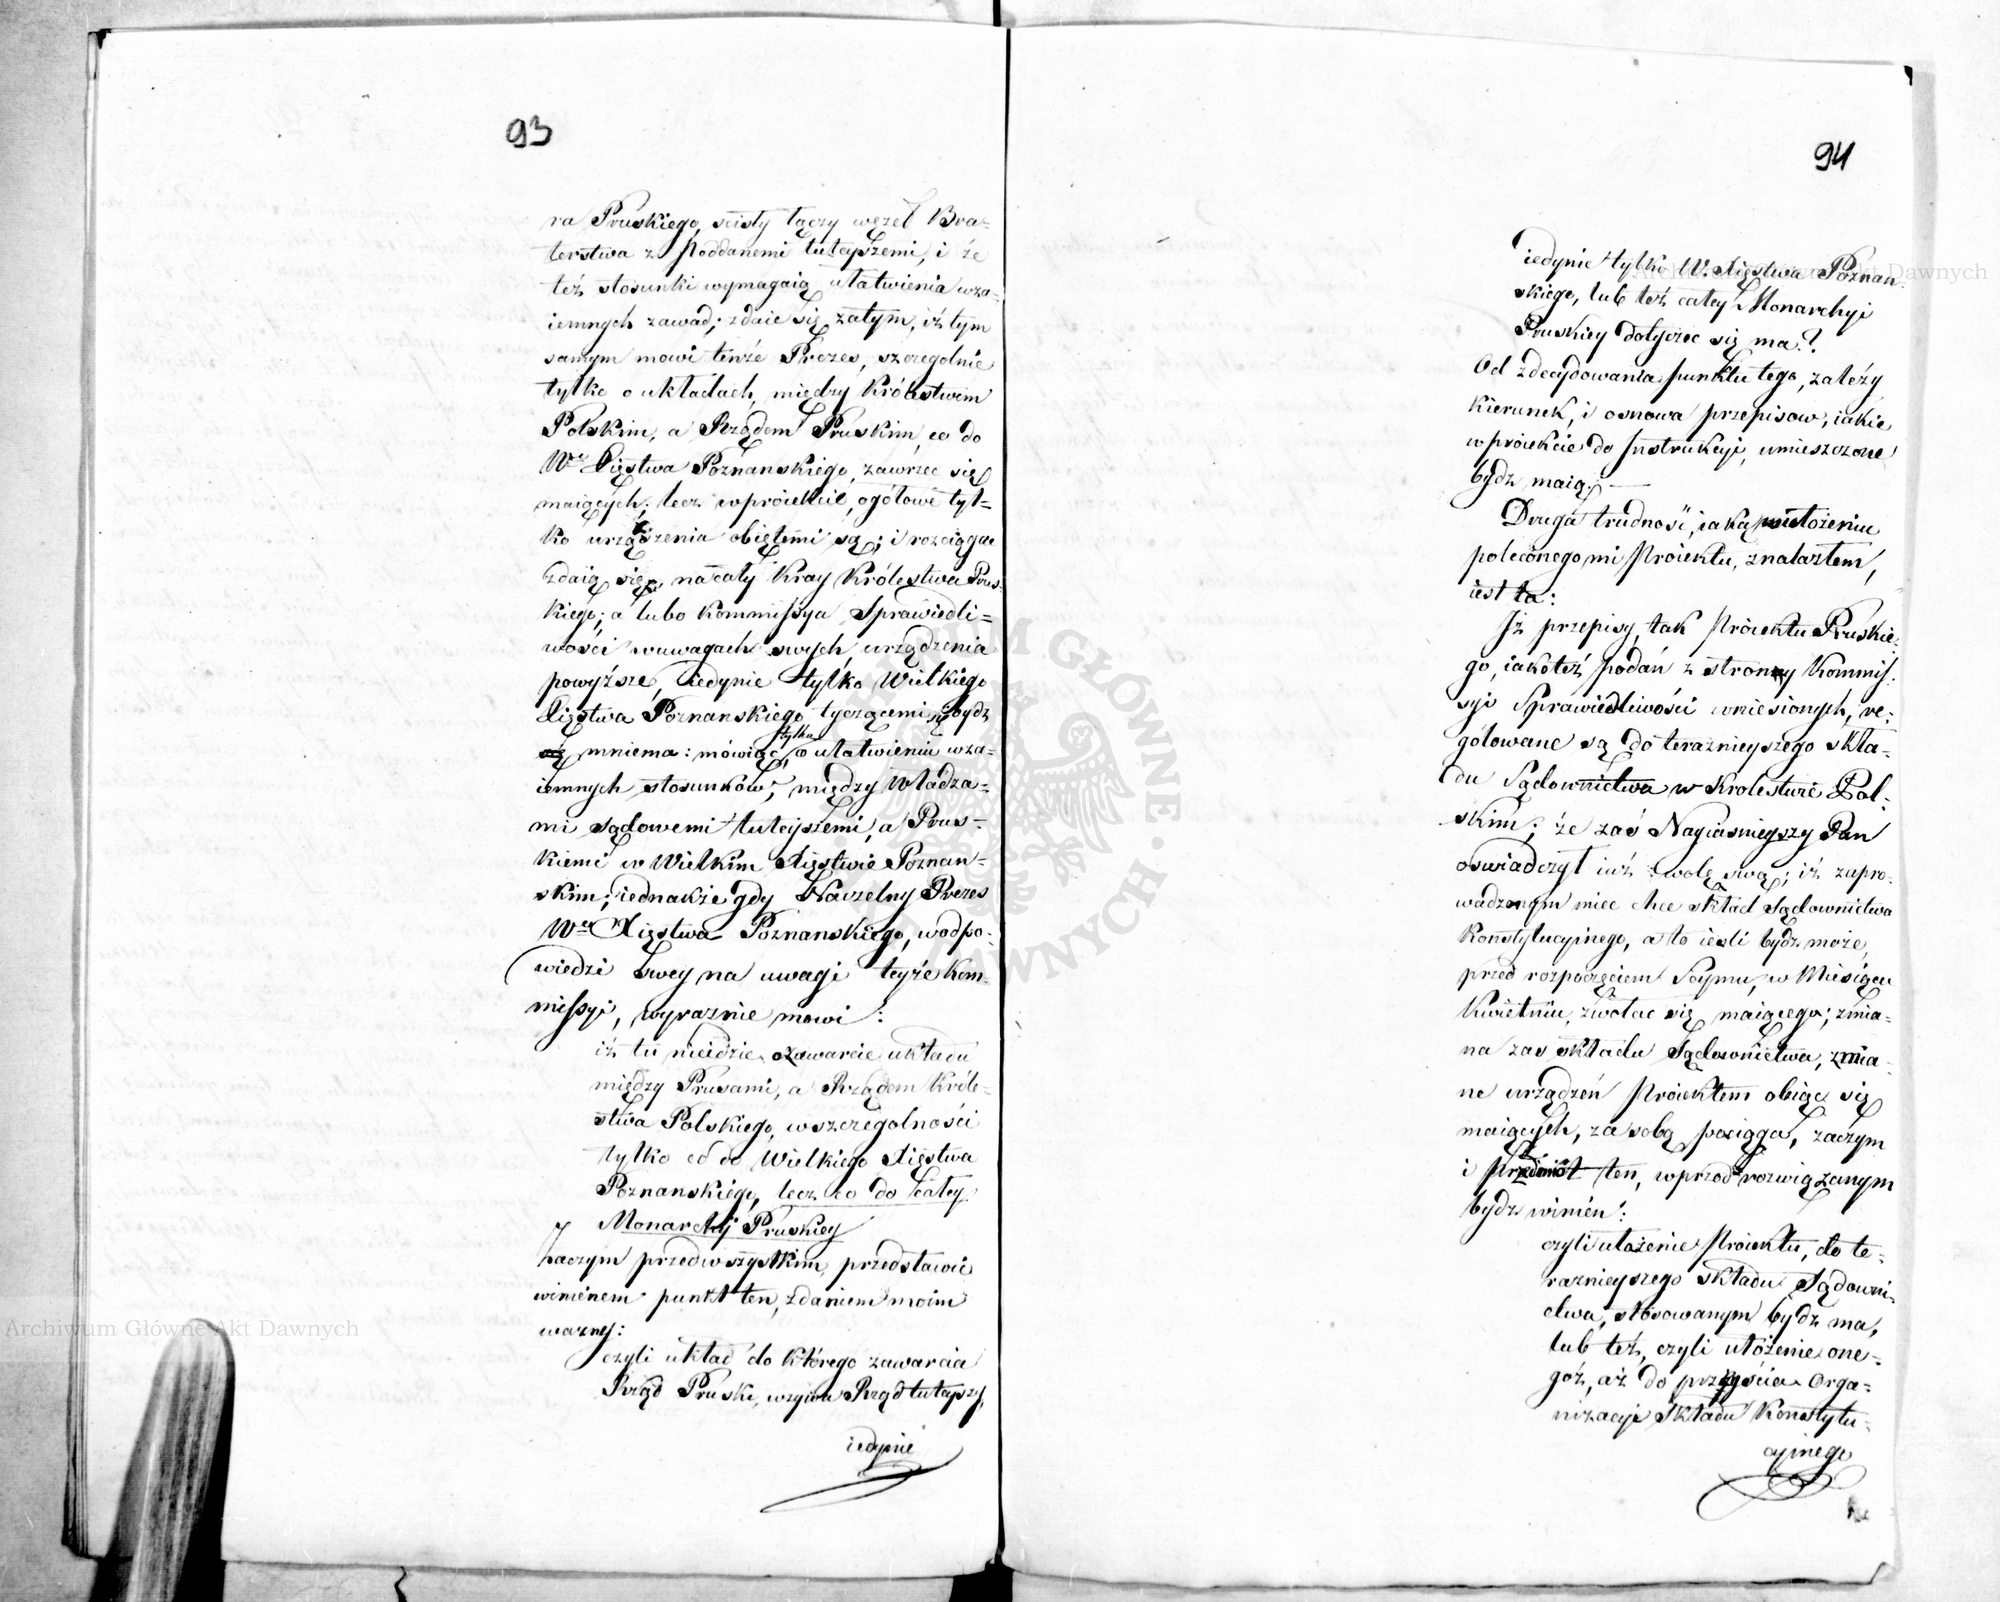 93
ra Pruskiego, scisły łączy węzeł Bra=
terstwa z Poddanemi tuteyszemi, i że
też stosunki wymagaią ułatwienia wza=
iemnych zawad; zdaie się zatym, iż tym
samym mowi tenże Prezes, szczegolnie
tylko o układach, między Królestwem
Polskim, a Rządem Pruskim, co do
Wo Xięstwa Poznanskiego, zawrzec się
maiących; lecz w proiekcie, ogółowe tyl=
ko urządzenia obiętemi są; i rozciągac
zdaią się, na cały Kray Królestwa Prus=
kiego; a lubo Kommissya Sprawiedli=
wości w uwagach swych, urządzenia
powyższe, iedynie tylko Wielkiego
Xięstwa Poznanskiego tyczącemi bydz
mniema: mówiąc, tylko o ułatwieniu wza=
iemnych stosunków, między Władza=
mi sądowemi tuteyszemi, a Prus=
kiemi w Wielkim Xięstwie Poznan=
skim; iednakże gdy Naczelny Prezes
Wo Xięstwa Poznanskiego, w odpo=
wiedzi swey na uwagi teyże Kom=
missyi, wyraznie mowi:
iż tu nieidzie o zawarcie układu
między Prusami, a Rządem Króle=
stwa Polskiego, w szczegolności
tylko co do Wielkiego Xięstwa
Poznanskiego, lecz co do całey
Monarchij Pruskiey
zaczym przedwszystkim, przedstawić
winienem punkt ten, zdaniem moim
wazny:
czyli układ do którego zawarcia
Rząd Pruski, wzywa Rząd tutayszy,
iedynie
94
iedynie tylko W. Xięstwa Poznan=
skiego, lub też całey Monarchyi
Pruskiey dotyczec się ma?
Od zdecydowania punktu tego, zależy
kierunek, i osnowa przepisow, iakie
w proiekcie do Instrukcyi, umieszczone
bydz maią.
Druga trudność, iaką w ułożeniu
poleconego mi Proiektu, znalazłem,
iest ta:
Iż przepisy, tak Proiektu Pruskie=
go, iakoteż podań z strony Kommis=
syi Sprawiedliwości wniesionych, re=
gólowane są do terazniejszego skła=
du Sądownictwa w Krolestwie Pol=
skim; że zaś Nayiasnieyszy Pan
oswiadczył iuż wolę swą; iż zapro=
wadzonym miec chce skład Sądownictwa
Konstytucyinego, a to iesli bydz może,
przed rozpoczęciem Seymu, w Miesiącu
Kwietniu, zwołac się maiącego; zmia=
na zas składu Sądownictwa, zmia=
nę urządzeń Proiektem obiąc się
maiących, za sobą pociąga, zaczym
i przedmiot ten, wprzod rozwiązanym
bydz winien:
czyli ułożenie Proiektu, do te=
raznieyszego składu Sądowni=
ctwa, stosowanym bydz ma,
lub też, czyli ułożenie one=
góż, aż do przyścia Orga=
nizacyi Składu Konstytu=
cyinego
Archiwum Główne Akt Dawnych